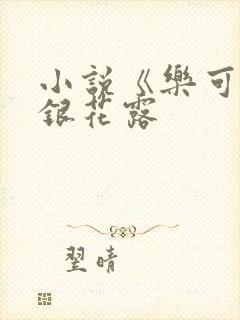 小説《樂可
銀花露
翌晴